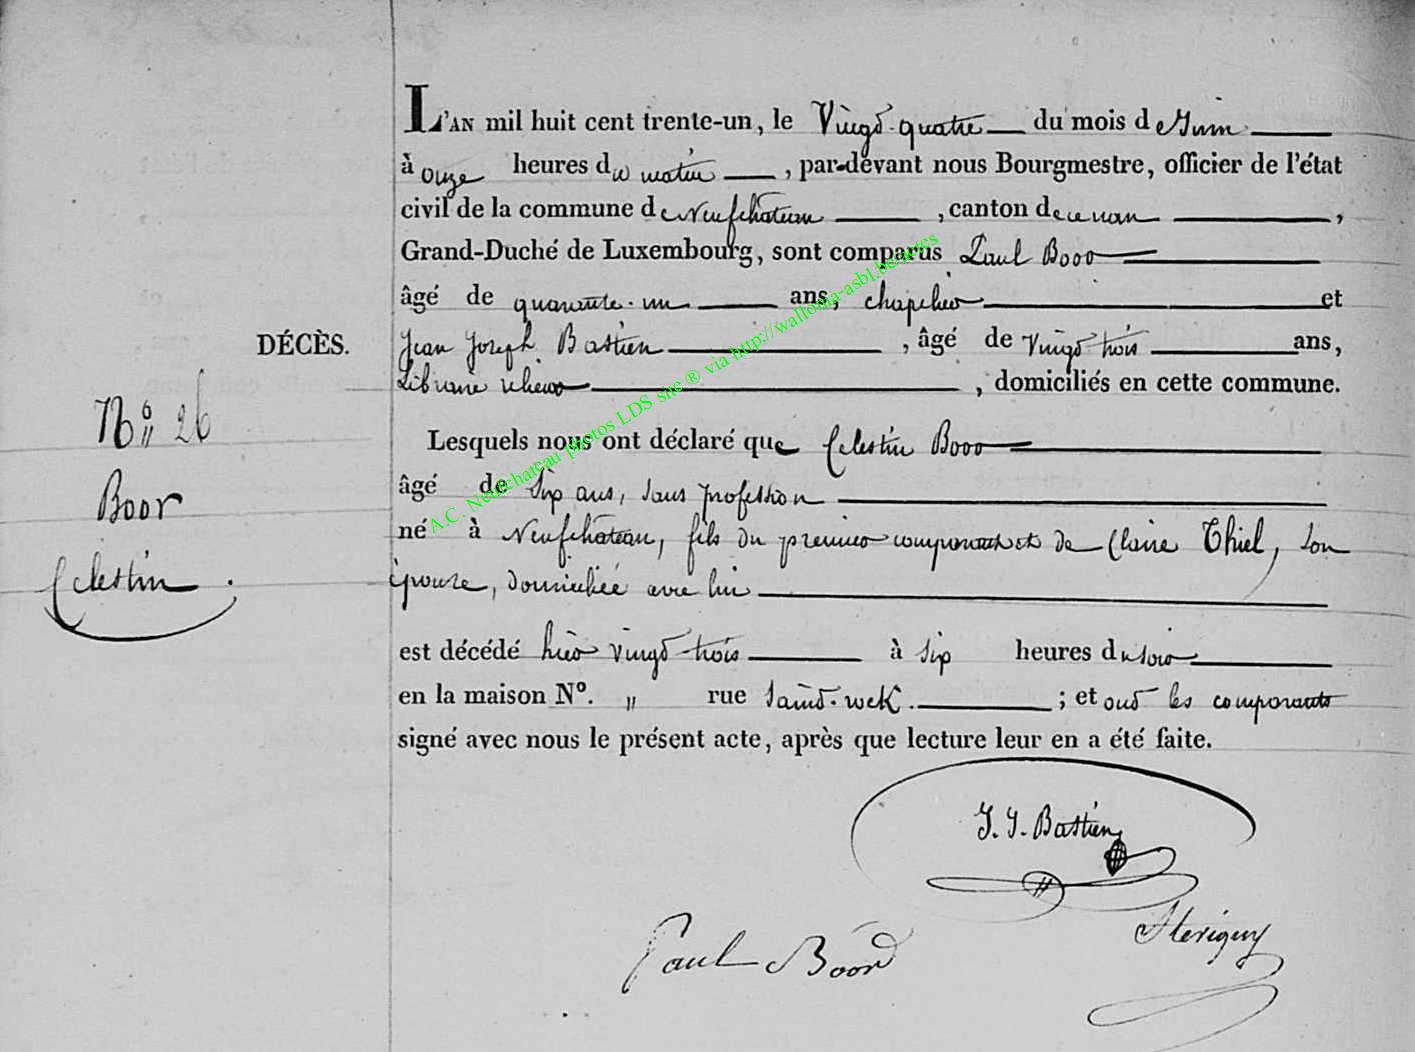 L'AN mil huit cent trente-un, le Vingt-quatre du mois de Juin
à onze heures du matin, par-devant nous Bourgmestre, officier de l'état
civil de la commune de Neufchâteau, canton de ce nom,
Grand-Duché de Luxembourg, sont comparus Paul Boor
âgé de quarante-un ans, chapelier et
DÉCÈS.
Jean Joseph Bastien, âgé de vingt trois ans,
Libraire relieur, domiciliés en cette commune.
N° 26
Boor
Celestin.
Lesquels nous ont déclaré que Celestin Boor
âgé de Six ans, sans profession
né à Neufchâteau, fils du premier comparant et de Claire Thiel, son
épouse, domiciliée avec lui
est décédé hier vingt trois à six heures du soir
en la maison N°. " rue ; et ont les comparants
signé avec nous le présent acte, après que lecture leur en a été faite.
J. J. Bastien
Paul Boor
A.C. Neufchateau photos LDS site ® via http://wallonia-asbl.be/actes